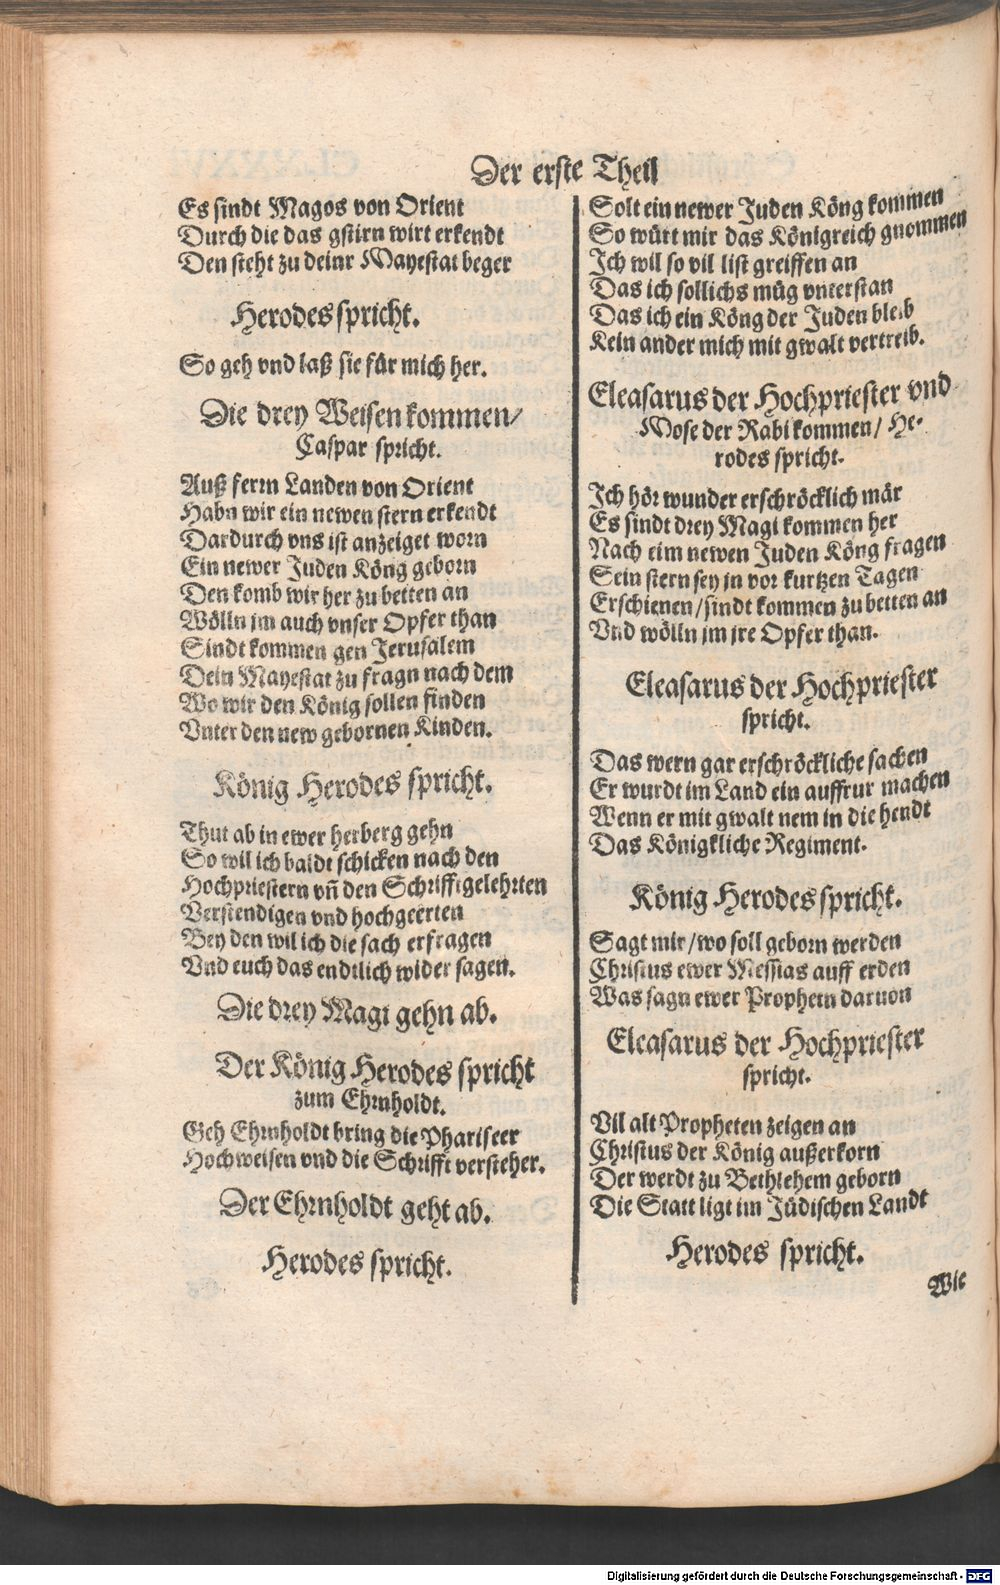 Der erste Theil
Es sindt Magos von Orient
Durch die das gstirn wirt erkendt
Den steht zu deinr Mayestat beger
Herodes spricht.
So geh vnd laß sie für mich her.
Die drey Weisen kommen/
Caspar spricht.
Auß ferrn Landen von Orient
Habn wir ein newen stern erkendt
Dardurch vns ist anzeiget worn
Ein newer Juden Köng geborn
Den komb wir her zu betten an
Wölln jm auch vnser Opfer than
Sindt kommen gen Jerusalem
Dein Mayestat zu fragn nach dem
Wo wir den König sollen finden
Vnter den new gebornen Kinden.
König Herodes spricht.
Thut ab in ewer herberg gehn
So wil ich baldt schicken nach den
Hochpriestern vñ den Schrifftgelehrten
Verstendigen vnd hochgeerten
Bey den wil ich die sach erfragen
Vnd euch das endtlich wider sagen.
Die drey Magi gehn ab.
Der König Herodes spricht
zum Ehrnholdt.
Geh Ehrnholdt bring die Phariseer
Hochweisen vnd die Schrifft versteher.
Der Ehrnholdt geht ab.
Herodes spricht.
Solt ein newer Juden Köng kommen
So würt mir das Königreich gnommen
Ich wil so vil list greiffen an
Das ich sollichs müg vnterstan
Das ich ein Köng der Juden bleib
Kein ander mich mit gwalt vertreib.
Eleasarus der Hochpriester vnd
Mose der Rabi kommen/ He-
rodes spricht.
Ich hör wunder erschröcklich mär
Es sindt drey Magi kommen her
Nach eim newen Juden Köng fragen
Sein stern sey jn vor kurtzen Tagen
Erschienen/sindt kommen zu betten an
Vnd wölln jm jre Opfer than.
Eleasarus der Hochpriester
spricht.
Das wern gar erschröckliche sachen
Er wurdt im Land ein auffrur machen
Wenn er mit gwalt nem in die hendt
Das Königkliche Regiment.
König Herodes spricht.
Sagt mir/wo soll geborn werden
Christus ewer Messias auff erden
Was sagn ewer Prophetn daruon
Eleasarus der Hochpriester
spricht.
Vil alt Propheten zeigen an
Christus der König außerkorn
Der werdt zu Bethlehem geborn
Die Statt ligt im Jüdischen Landt
Herodes spricht.
Wie
Digitalisierung gefördert durch die Deutsche Forschungsgemeinschaft - DFG